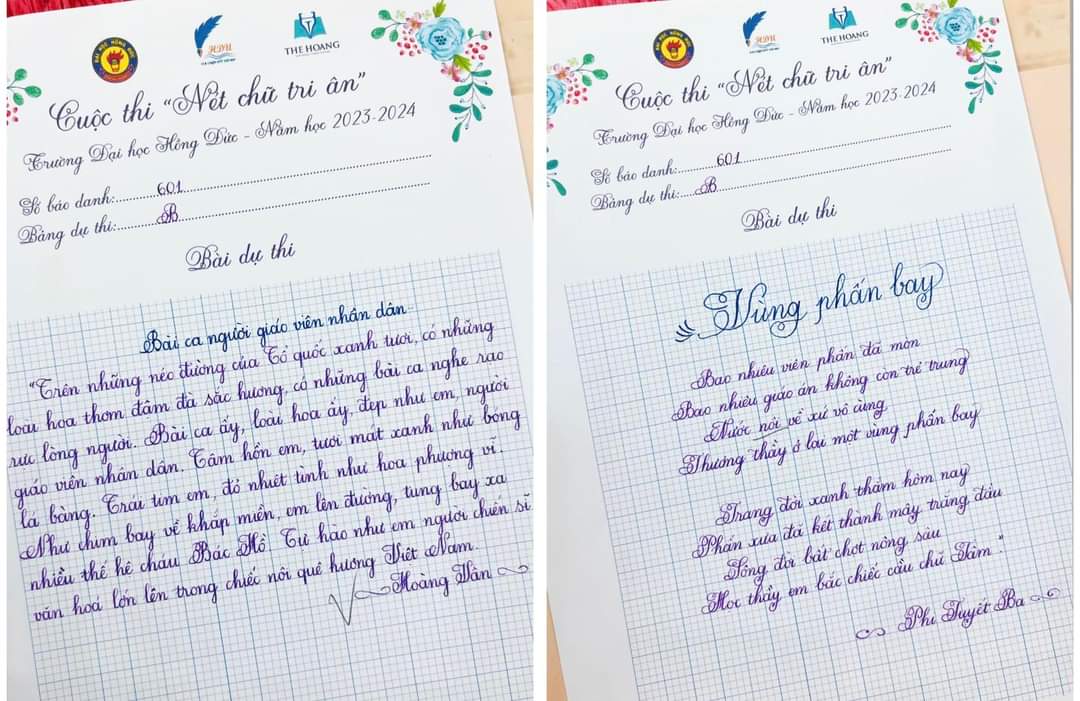 HDU
THE HOANG
Cuộc thi "Nét chữ tri ân"
Trường Đại học Hồng Đức - Năm học 2023-2024
Số báo danh:.........601
Bảng dự thi:.........B
Bài dự thi
Bài ca người giáo viên nhân dân
"Trên những nẻo đường của Tổ quốc xanh tươi, có những
loài hoa thơm đậm đà sắc hương, có những bài ca nghe rạo
rực lòng người. Bài ca ấy, loài hoa ấy, đẹp như em, người
giáo viên nhân dân. Tâm hồn em, tươi mát xanh như bóng
lá bàng. Trái tim em, đỏ nhiệt tình như hoa phượng vĩ.
Như chim bay về khắp miền, em lên đường, tung bay xa
nhiều thế hệ cháu Bác Hồ. Tự hào như em người chiến sĩ
văn hoá lớn lên trong chiếc nôi quê hương Việt Nam.
Hoàng Vân
HDU
THE HOANG
Cuộc thi "Nét chữ tri ân"
Trường Đại học Hồng Đức - Năm học 2023-2024
Số báo danh:.........601
Bảng dự thi:.........B
Bài dự thi
Vùng phấn bay
Bao nhiêu viên phấn đã mòn
Bao nhiêu giáo án không còn trẻ trung
Nước nôi về xứ vô cùng
Thương thầy ở lại một vùng phấn bay
Trang đời xanh thẳm hôm nay
Phấn xưa đã kết thành mây trắng đầu
Sông đời bất chợt nông sâu
Mọi thầy em bắc chiếc cầu chữ Tâm."
Phi Tuyết Ba